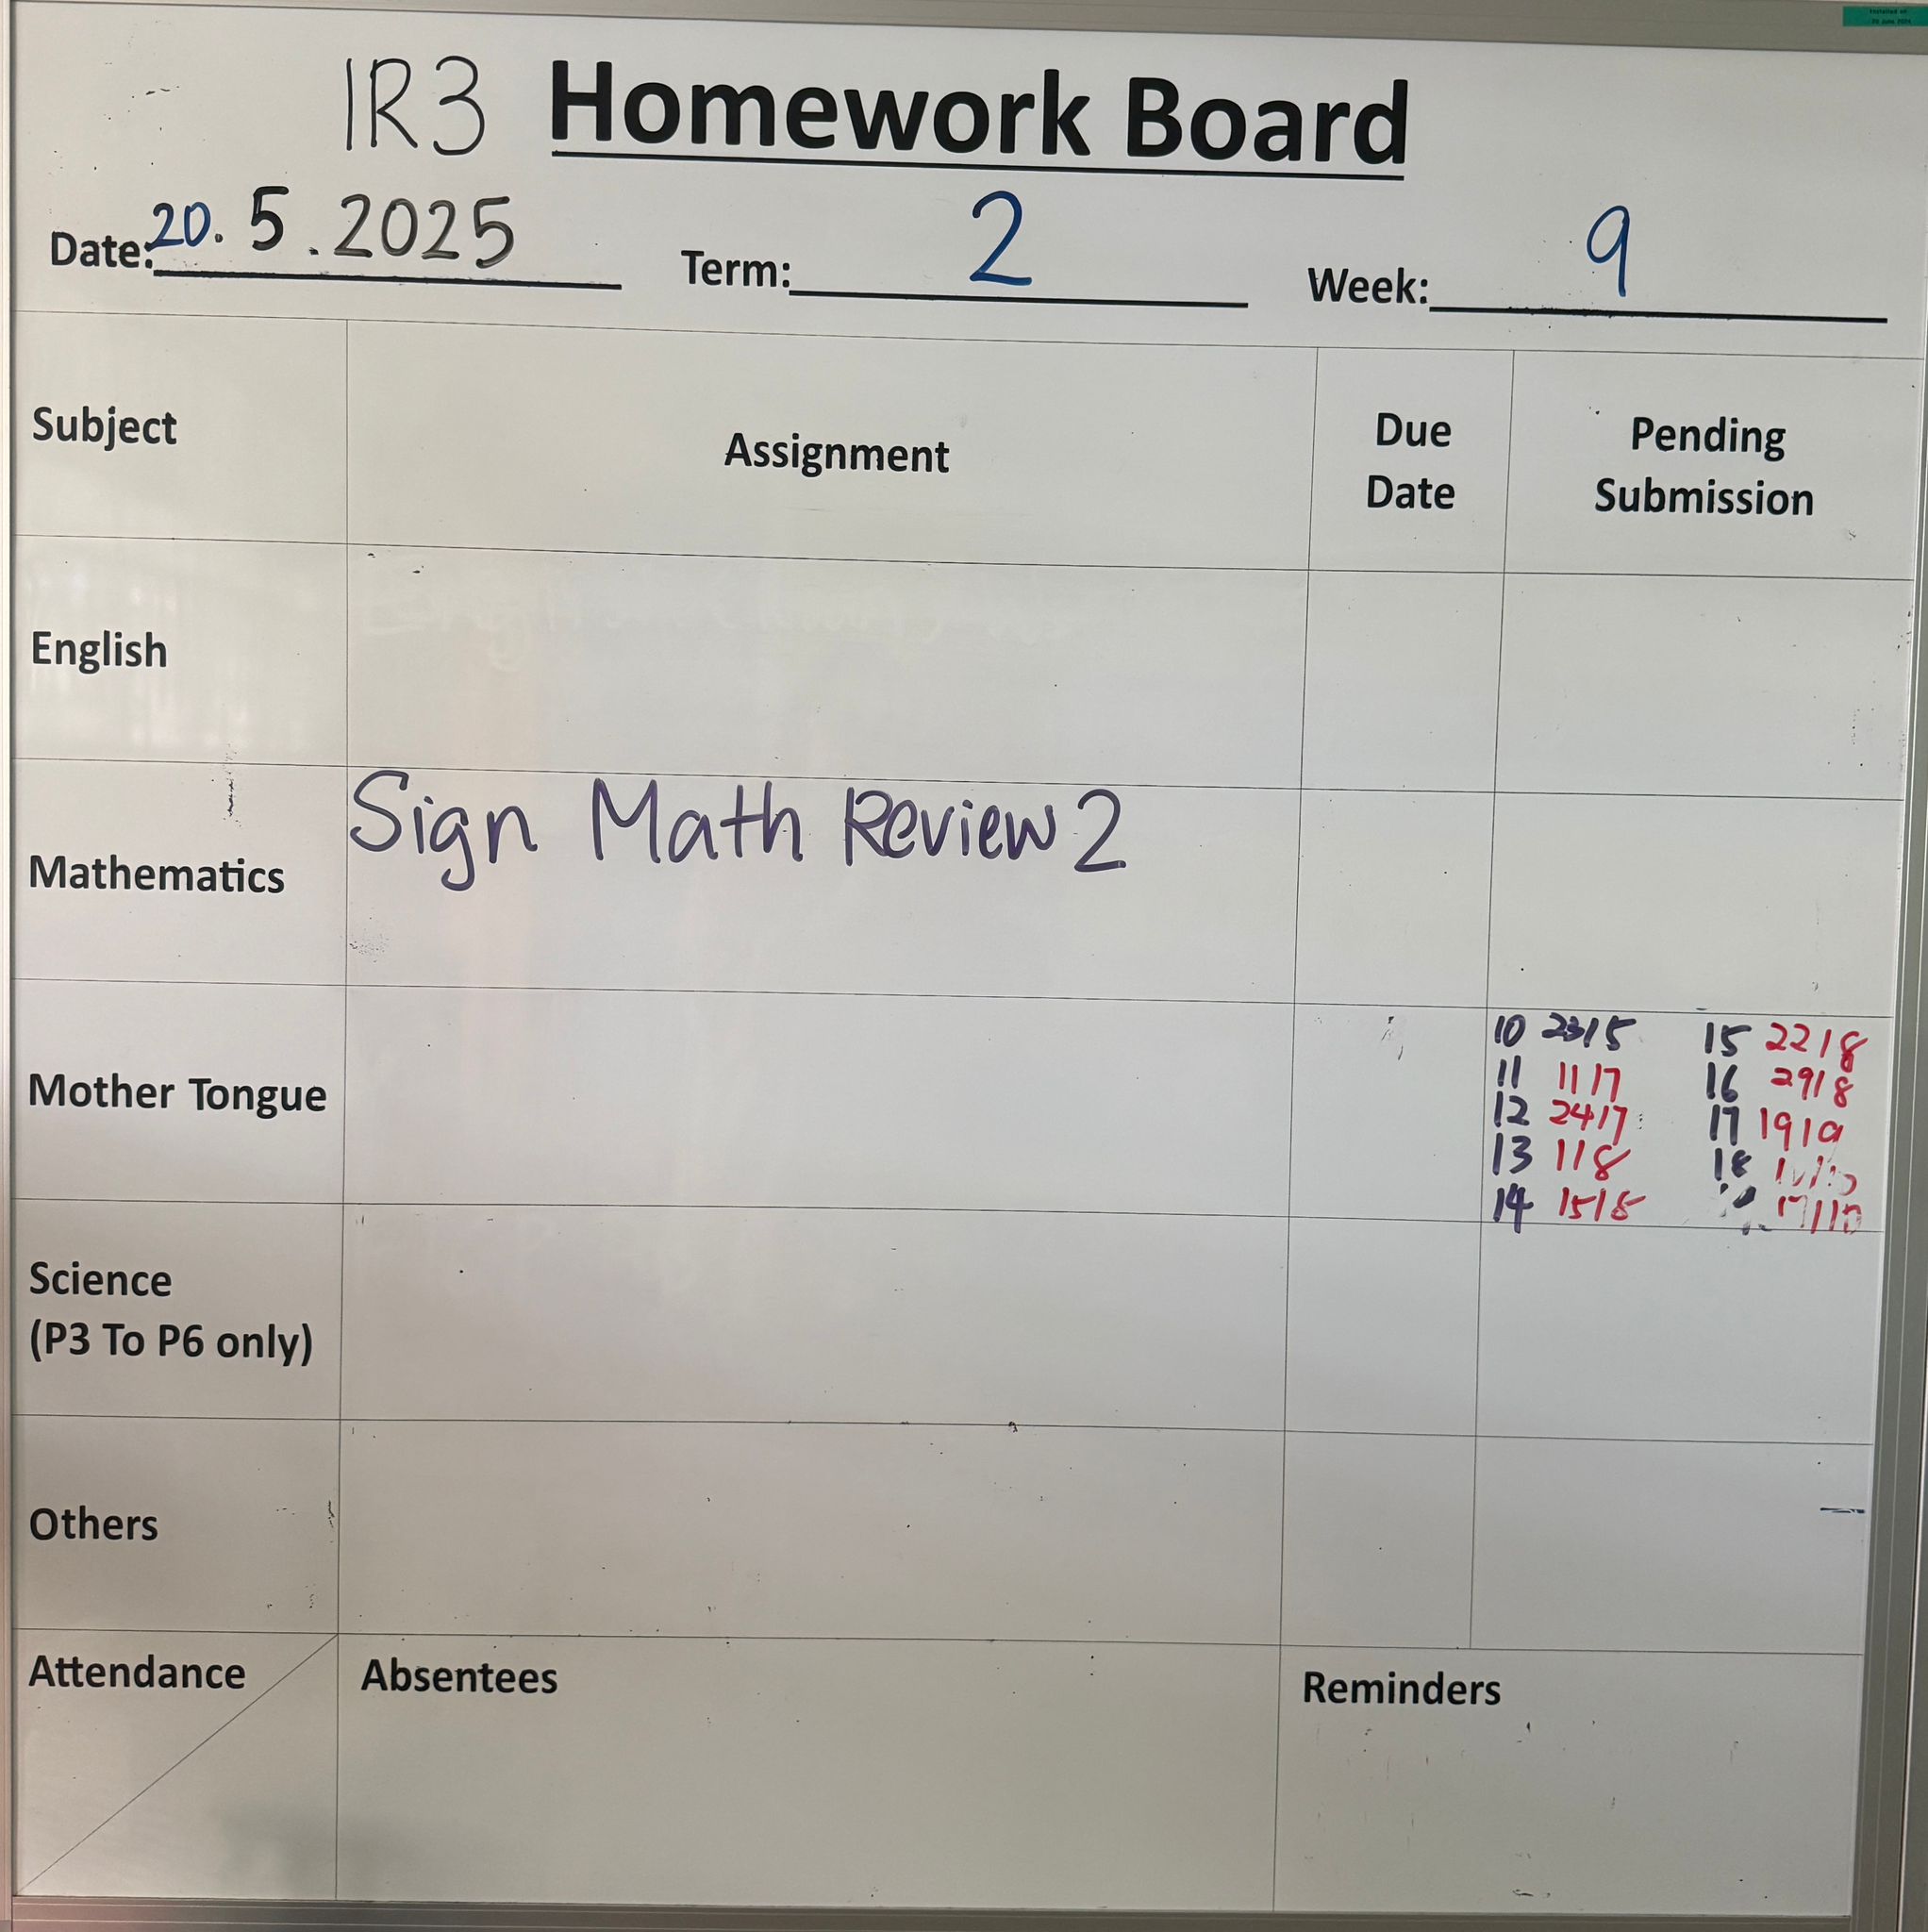 1R3 Homework Board
Date: 20. 5 . 2025 Term: 2 Week: 9
Subject Assignment Due Date Pending Submission
English
Mathematics Sign Math Review 2
Mother Tongue
10 23/5 15 22/8
11 11/7 16 29/8
12 24/7 17 19/9
13 1/8 18
14 15/8
Science
(P3 To P6 only)
Others
Attendance Absentees Reminders